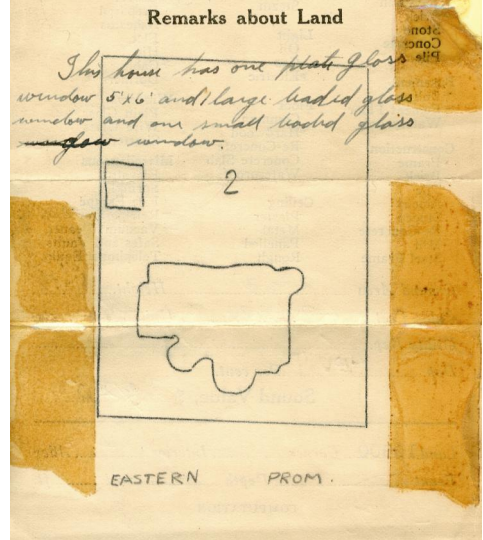 Remarks about Land
This house has one plate glass
window 5'x6' and 1 large leaded glass
window and one small leaded glass
window.
2
EASTERN PROM.